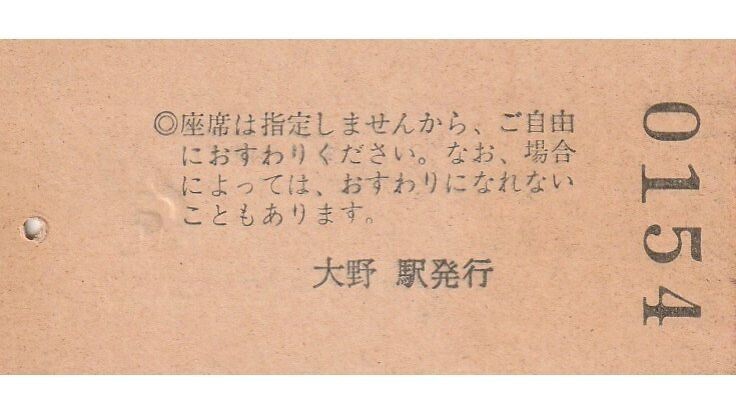 ◎座席は指定しませんから、ご自由
におすわりください。なお、場合
によっては、おすわりになれない
こともあります。
大野 駅発行
0154